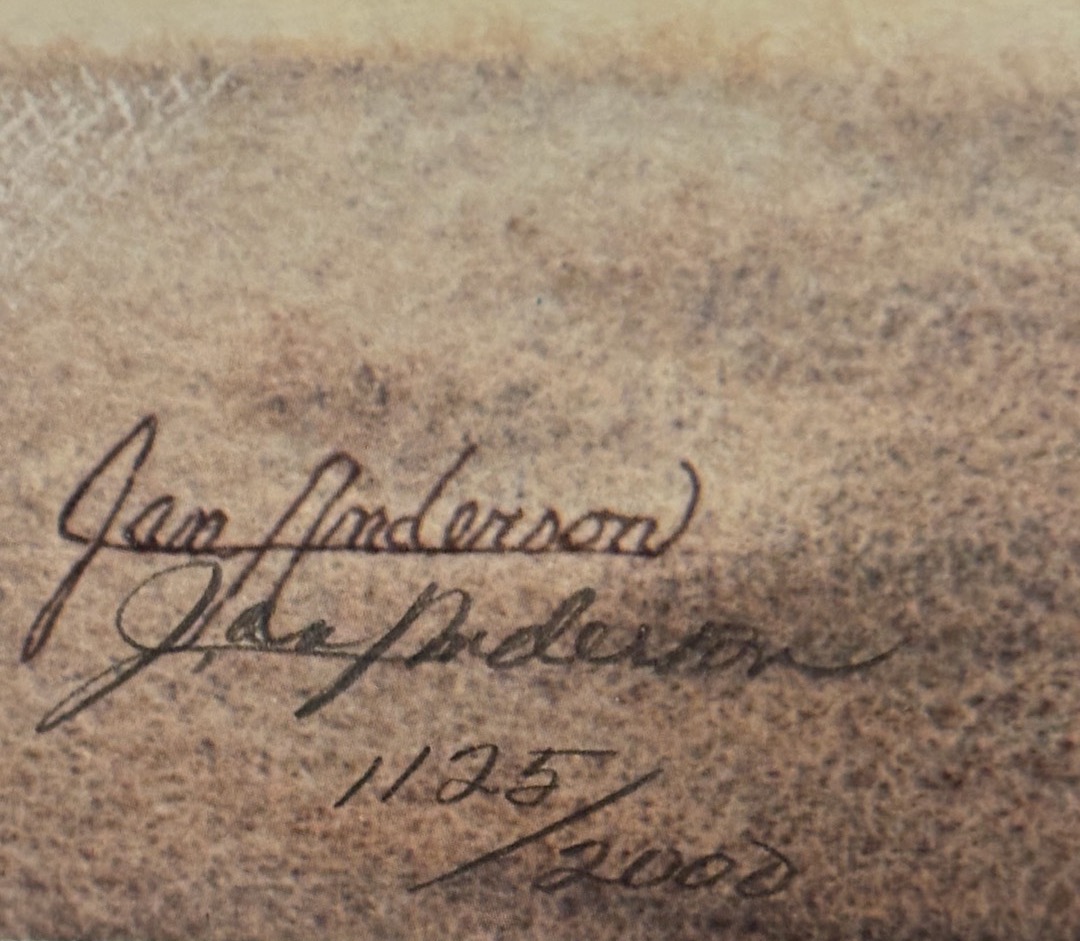 Jan Anderson
Jan Anderson
1125/2000